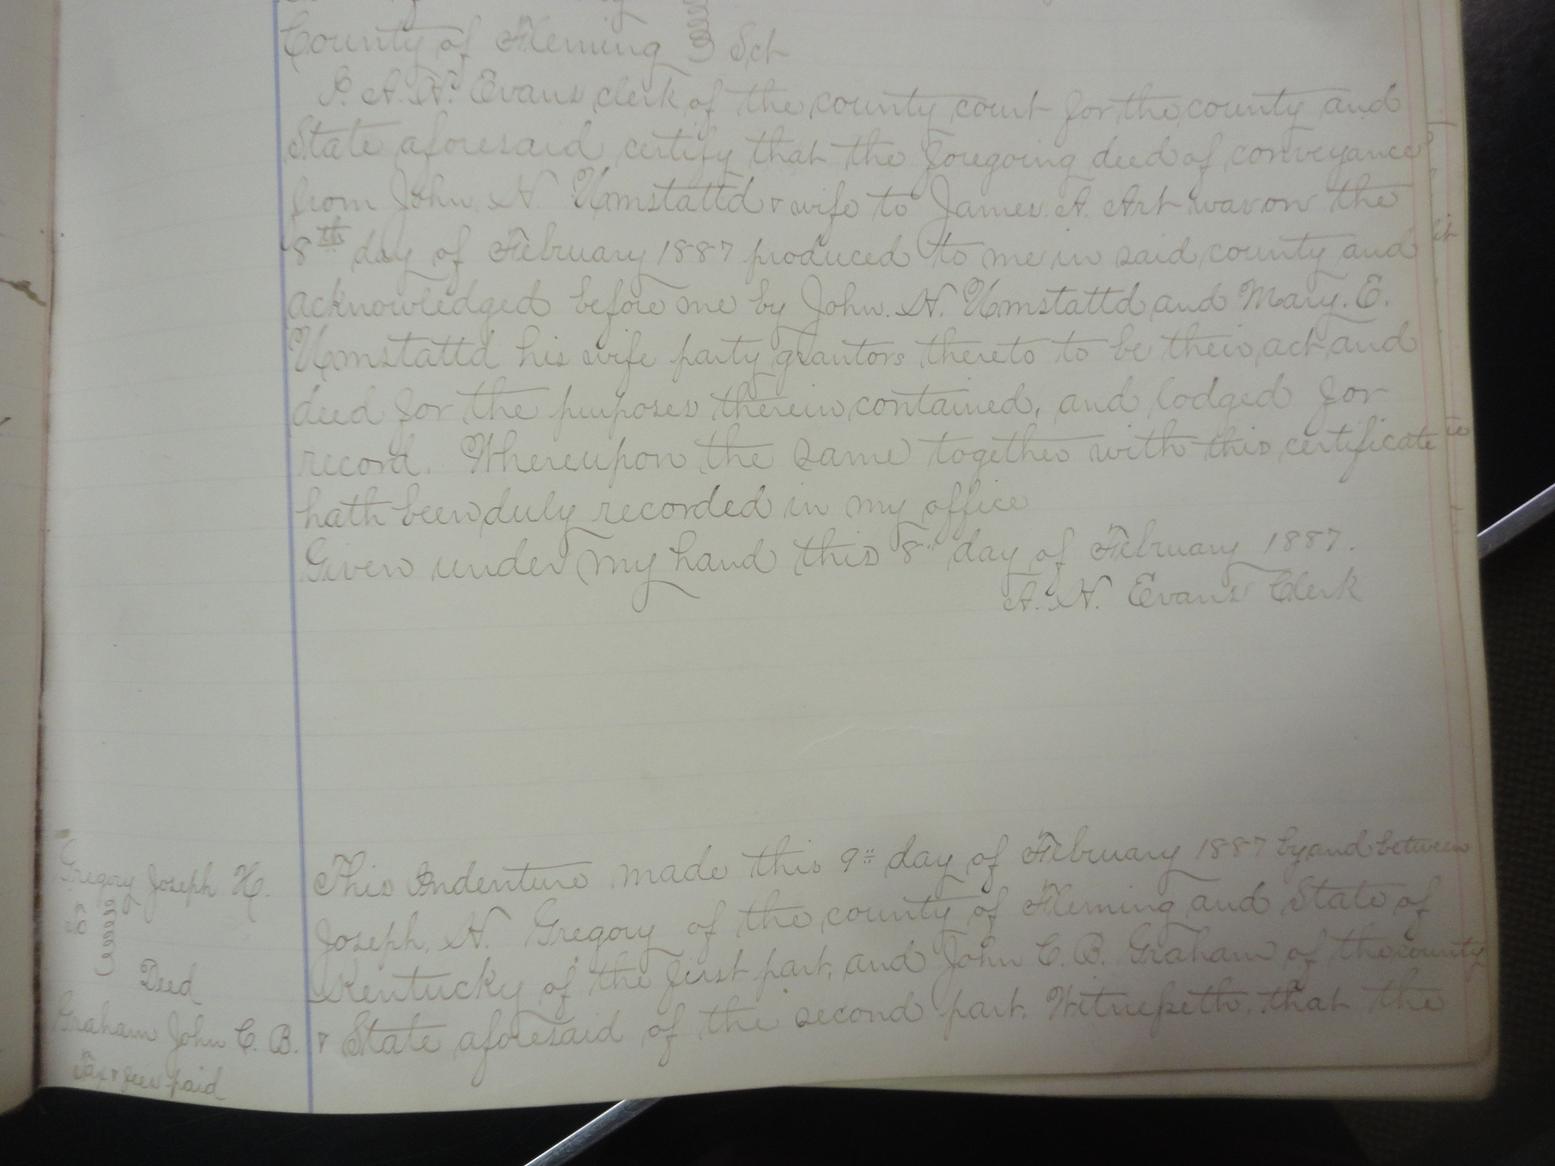 County of Fleming } Sct
I. A. N. Evans clerk of the county court for the county and
State aforesaid certify that the foregoing deed of conveyance
from John. N. Umstattd & wife to James. A. Art was on the
8th day of February 1887 produced to me in said county and
acknowledged before me by John. N. Umstattd and Mary. E.
Umstattd his wife party grantors thereto to be their act and
deed for the purposes therein contained, and lodged for
record. Whereupon the same together with this certificate
hath been duly recorded in my office
Given under my hand this 8" day of February 1887.
A. N. Evans Clerk
Gregory Joseph H.
to }
Deed
Graham John C. B.
Tax & fees paid
This Indenture made this 9" day of February 1887 by and between
Joseph. H. Gregory of the county of Fleming and State of
Kentucky of the first part, and John C. B. Graham of the county
& State aforesaid of the second part. Witnesseth, that the